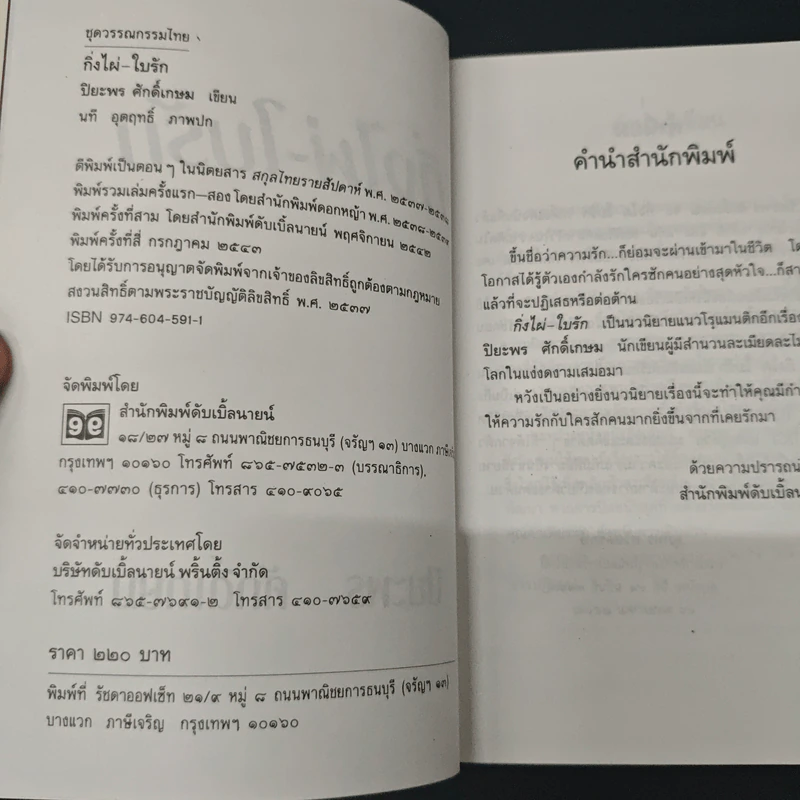 ชุดวรรณกรรมไทย
กิ่งไผ่-ใบรัก
ปิยะพร ศักดิ์เกษม เขียน
นที อุตฤทธิ์ ภาพปก
ตีพิมพ์เป็นตอน ๆ ในนิตยสาร สกุลไทยรายสัปดาห์ พ.ศ. ๒๕๓๗-๒๕๓๘
พิมพ์รวมเล่มครั้งแรก-สอง โดยสำนักพิมพ์ดอกหญ้า พ.ศ. ๒๕๓๘-๒๕๓๙
พิมพ์ครั้งที่สาม โดยสำนักพิมพ์ดับเบิ้ลนายน์ พฤศจิกายน ๒๕๔๒
พิมพ์ครั้งที่สี่ กรกฎาคม ๒๕๔๓
โดยได้รับการอนุญาตจัดพิมพ์จากเจ้าของลิขสิทธิ์ถูกต้องตามกฎหมาย
สงวนสิทธิ์ตามพระราชบัญญัติลิขสิทธิ์ พ.ศ. ๒๕๓๗
ISBN 974-604-591-1
จัดพิมพ์โดย
๙๙ สำนักพิมพ์ดับเบิ้ลนายน์
๑๘/๒๗ หมู่ ๘ ถนนพาณิชยการธนบุรี (จรัญฯ ๑๓) บางแวก
กรุงเทพฯ ๑๐๑๖๐ โทรศัพท์ ๘๖๕-๗๕๓๒-๓ (บรรณาธิการ).
๔๑๐-๗๗๓๐ (ธุรการ) โทรสาร ๔๑๐-๙๐๖๕
จัดจำหน่ายทั่วประเทศโดย
บริษัทดับเบิ้ลนายน์ พริ้นติ้ง จำกัด
โทรศัพท์ ๘๖๕-๗๖๙๑-๒ โทรสาร ๔๑๐-๗๖๕๙
ราคา ๒๒๐ บาท
พิมพ์ที่ รัชดาออฟเซ็ท ๒๑/๙ หมู่ ๘ ถนนพาณิชยการธนบุรี (จรัญฯ ๑๓)
บางแวก ภาษีเจริญ กรุงเทพฯ ๑๐๑๖๐
คำนำสำนักพิมพ์
ขึ้นชื่อว่าความรัก...ก็ย่อมจะผ่านเข้ามาในชีวิต
โอกาสได้รู้ตัวเองกำลังรักใครซักคนอย่างสุดหัวใจ...
แล้วที่จะปฏิเสธหรือต่อต้าน
กิ่งไผ่-ใบรัก เป็นนวนิยายแนวโรแมนติกอีกเรื่อง
ปิยะพร ศักดิ์เกษม นักเขียนผู้มีสำนวนละเมียดละไม
โลกในแง่งดงามเสมอมา
หวังเป็นอย่างยิ่งนวนิยายเรื่องนี้จะทำให้คุณมี
ให้ความรักกับใครสักคนมากยิ่งขึ้นจากที่เคยรักมา
ด้วยความปรารถ
สำนักพิมพ์ดับเบิ้ล